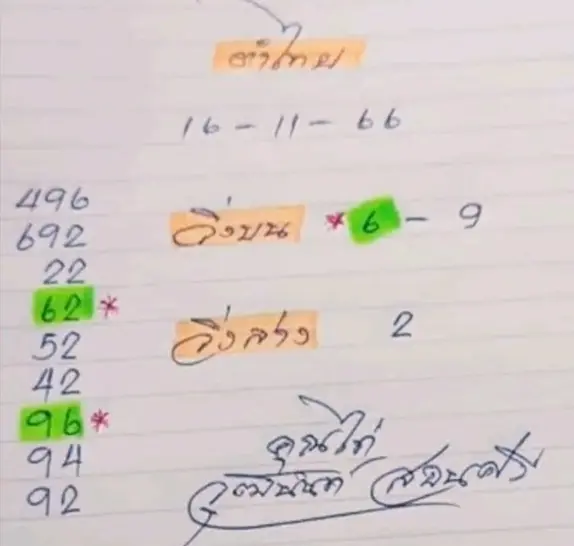 กำไทย
16 - 11 - 66
496
692
22
62 *
52
42
96 *
94
92
วิ่งบน *6 - 9
วิ่งล่าง 2